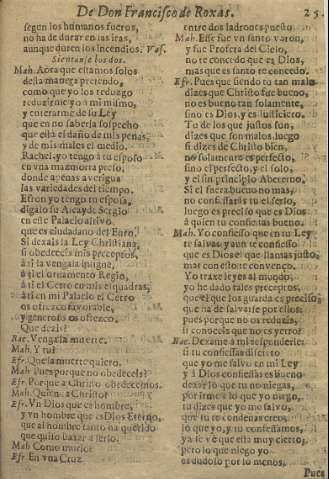 De Don Francisco de Roxas. 25
segun los humanos fueros,
no ha de durar en las iras,
aunque duren los incendios. Vas.
Sientanse los dos.
Mah. Aora que estamos solos
desta manera pretendo,
como que yo los reduzgo
reduzirme yo à mi mismo,
y enterarme de la Ley
que en no saberla sospecho
que està el daño de mis penas,
y de mis males el medio.
Rachel, yo tengo à tu esposo
en vna mazmorra preso,
donde apenas averigua
las variedades del tiempo.
Efron yo tengo tu esposa,
digalo su Alcayde Sergio
en este Palacio altivo
que es ciudadano del
si dexais la Ley Christiana,
si obedeceis mis preceptos,
à ti la vengala insigne,
à ti el ornamento Regio,
à ti el Cetro en mis esquadras,
à ti en mi Palacio el Cetro
os ofrezco favorable,
y generoso os ofrezco.
Que dezis?
Rac. Vengala muerte.
Mah. Y tu?
Efr. Que la muerte quiero.
Mah. Pues porque no obedeceis?
Efr. Porque a Christo obedecemos.
Mah. Quien à Christo?
Efr. Vn Dios que es hombre,
y vn hombre que es Dios Eterno,
que al hombre tanto ha querido
que quiso baxar a serlo.
Mah Como murio?
Efr En vna Cruz
entre dos ladrones puesto.
Mah. Esse fue vn santo varon,
y fue Profeta del Cielo,
no te concedo que es Dios,
mas que es santo te concedo.
Efr. Pues que siendo tu tan malo
dizes que Christo fue bueno,
no es bueno tan solamente,
sino es Dios, y es justiciero.
Tu de los que justos son,
dizes que son malos luego
si dizes de Christo bien,
no solamente es perfecto,
sino el perfecto, y el solo,
y el sin principio Abeterno.
Si el fuera bueno no mas,
no confessaràs tu el serlo,
luego es preciso que es Dios
à quien tu confiessas bueno.
Mah. Yo confiesso que en tu Ley
te salvas, y aun te confiesso
que es Dios el que llamas justo,
mas con este te convenço.
Yo traxe leyes al mundo,
yo he dado tales preceptos,
que el que los guarda es preciso
que ha de salvarse por ellos:
pues porque no os reduzis,
si conoceis que no es yerro?
Rac. Dexame à mi responderle:
si tu confiessas
que yo me salvo en mi Ley
y à Dios confiessas es bueno
dexar lo que tu no niegas,
por irme à lo que yo niego,
tu dizes que yo me salvo,
que tu te condenas creo,
lo que yo, y tu confessamos,
ya se vè que està muy cierto,
pero lo que niego yo
es dudoso por lo menos,
Pues